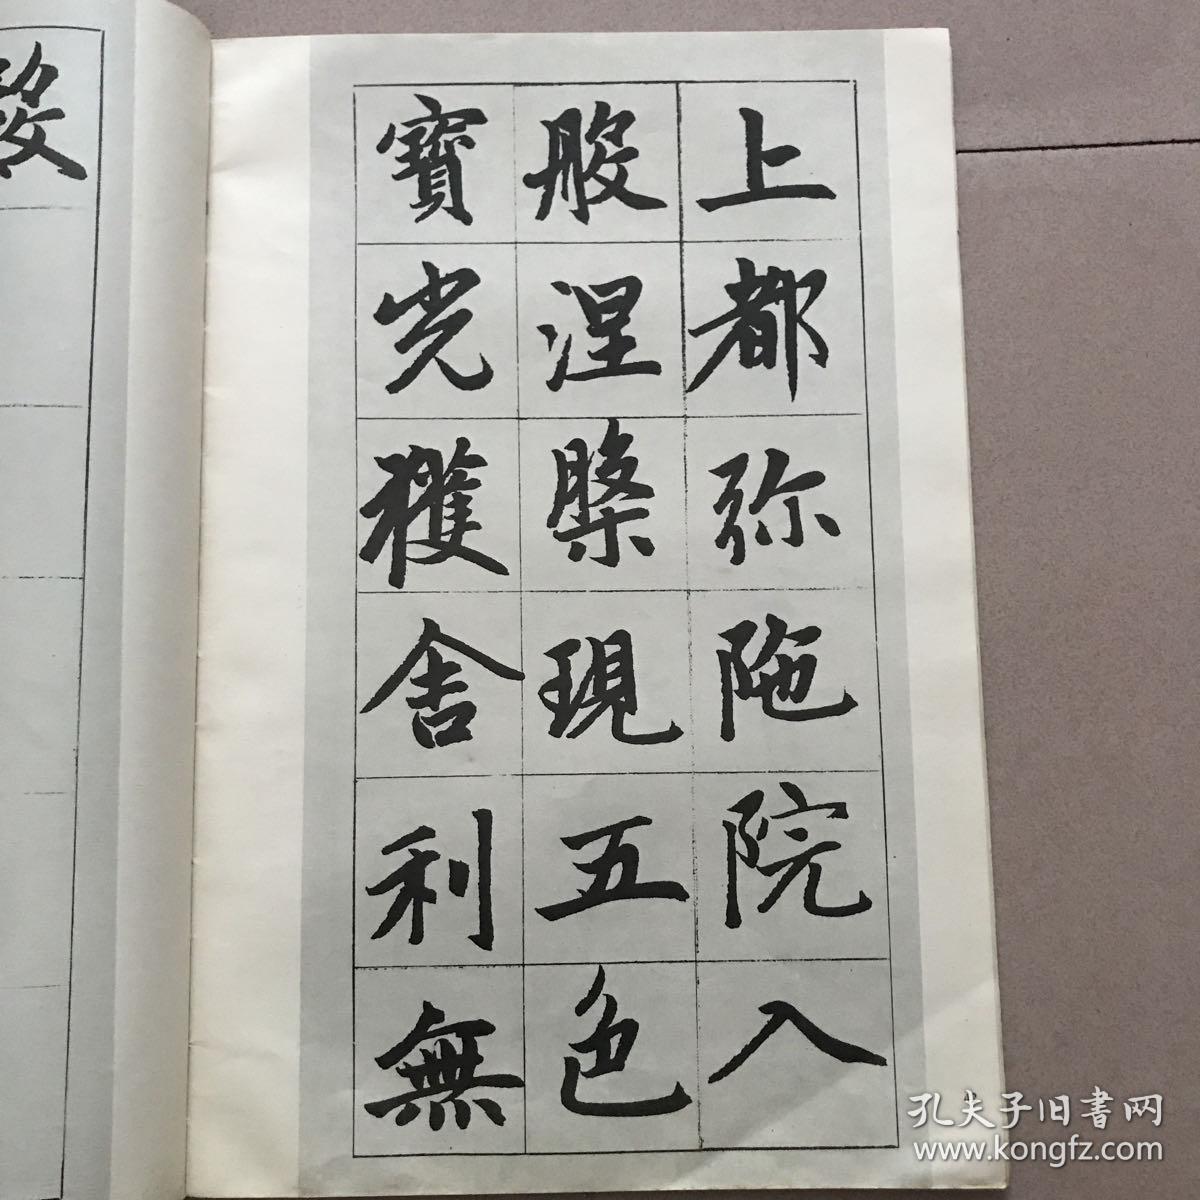 上都弥陁院入
般涅槃現五色
寳光獲舎利無
孔夫子旧書网
www.kongfz.com